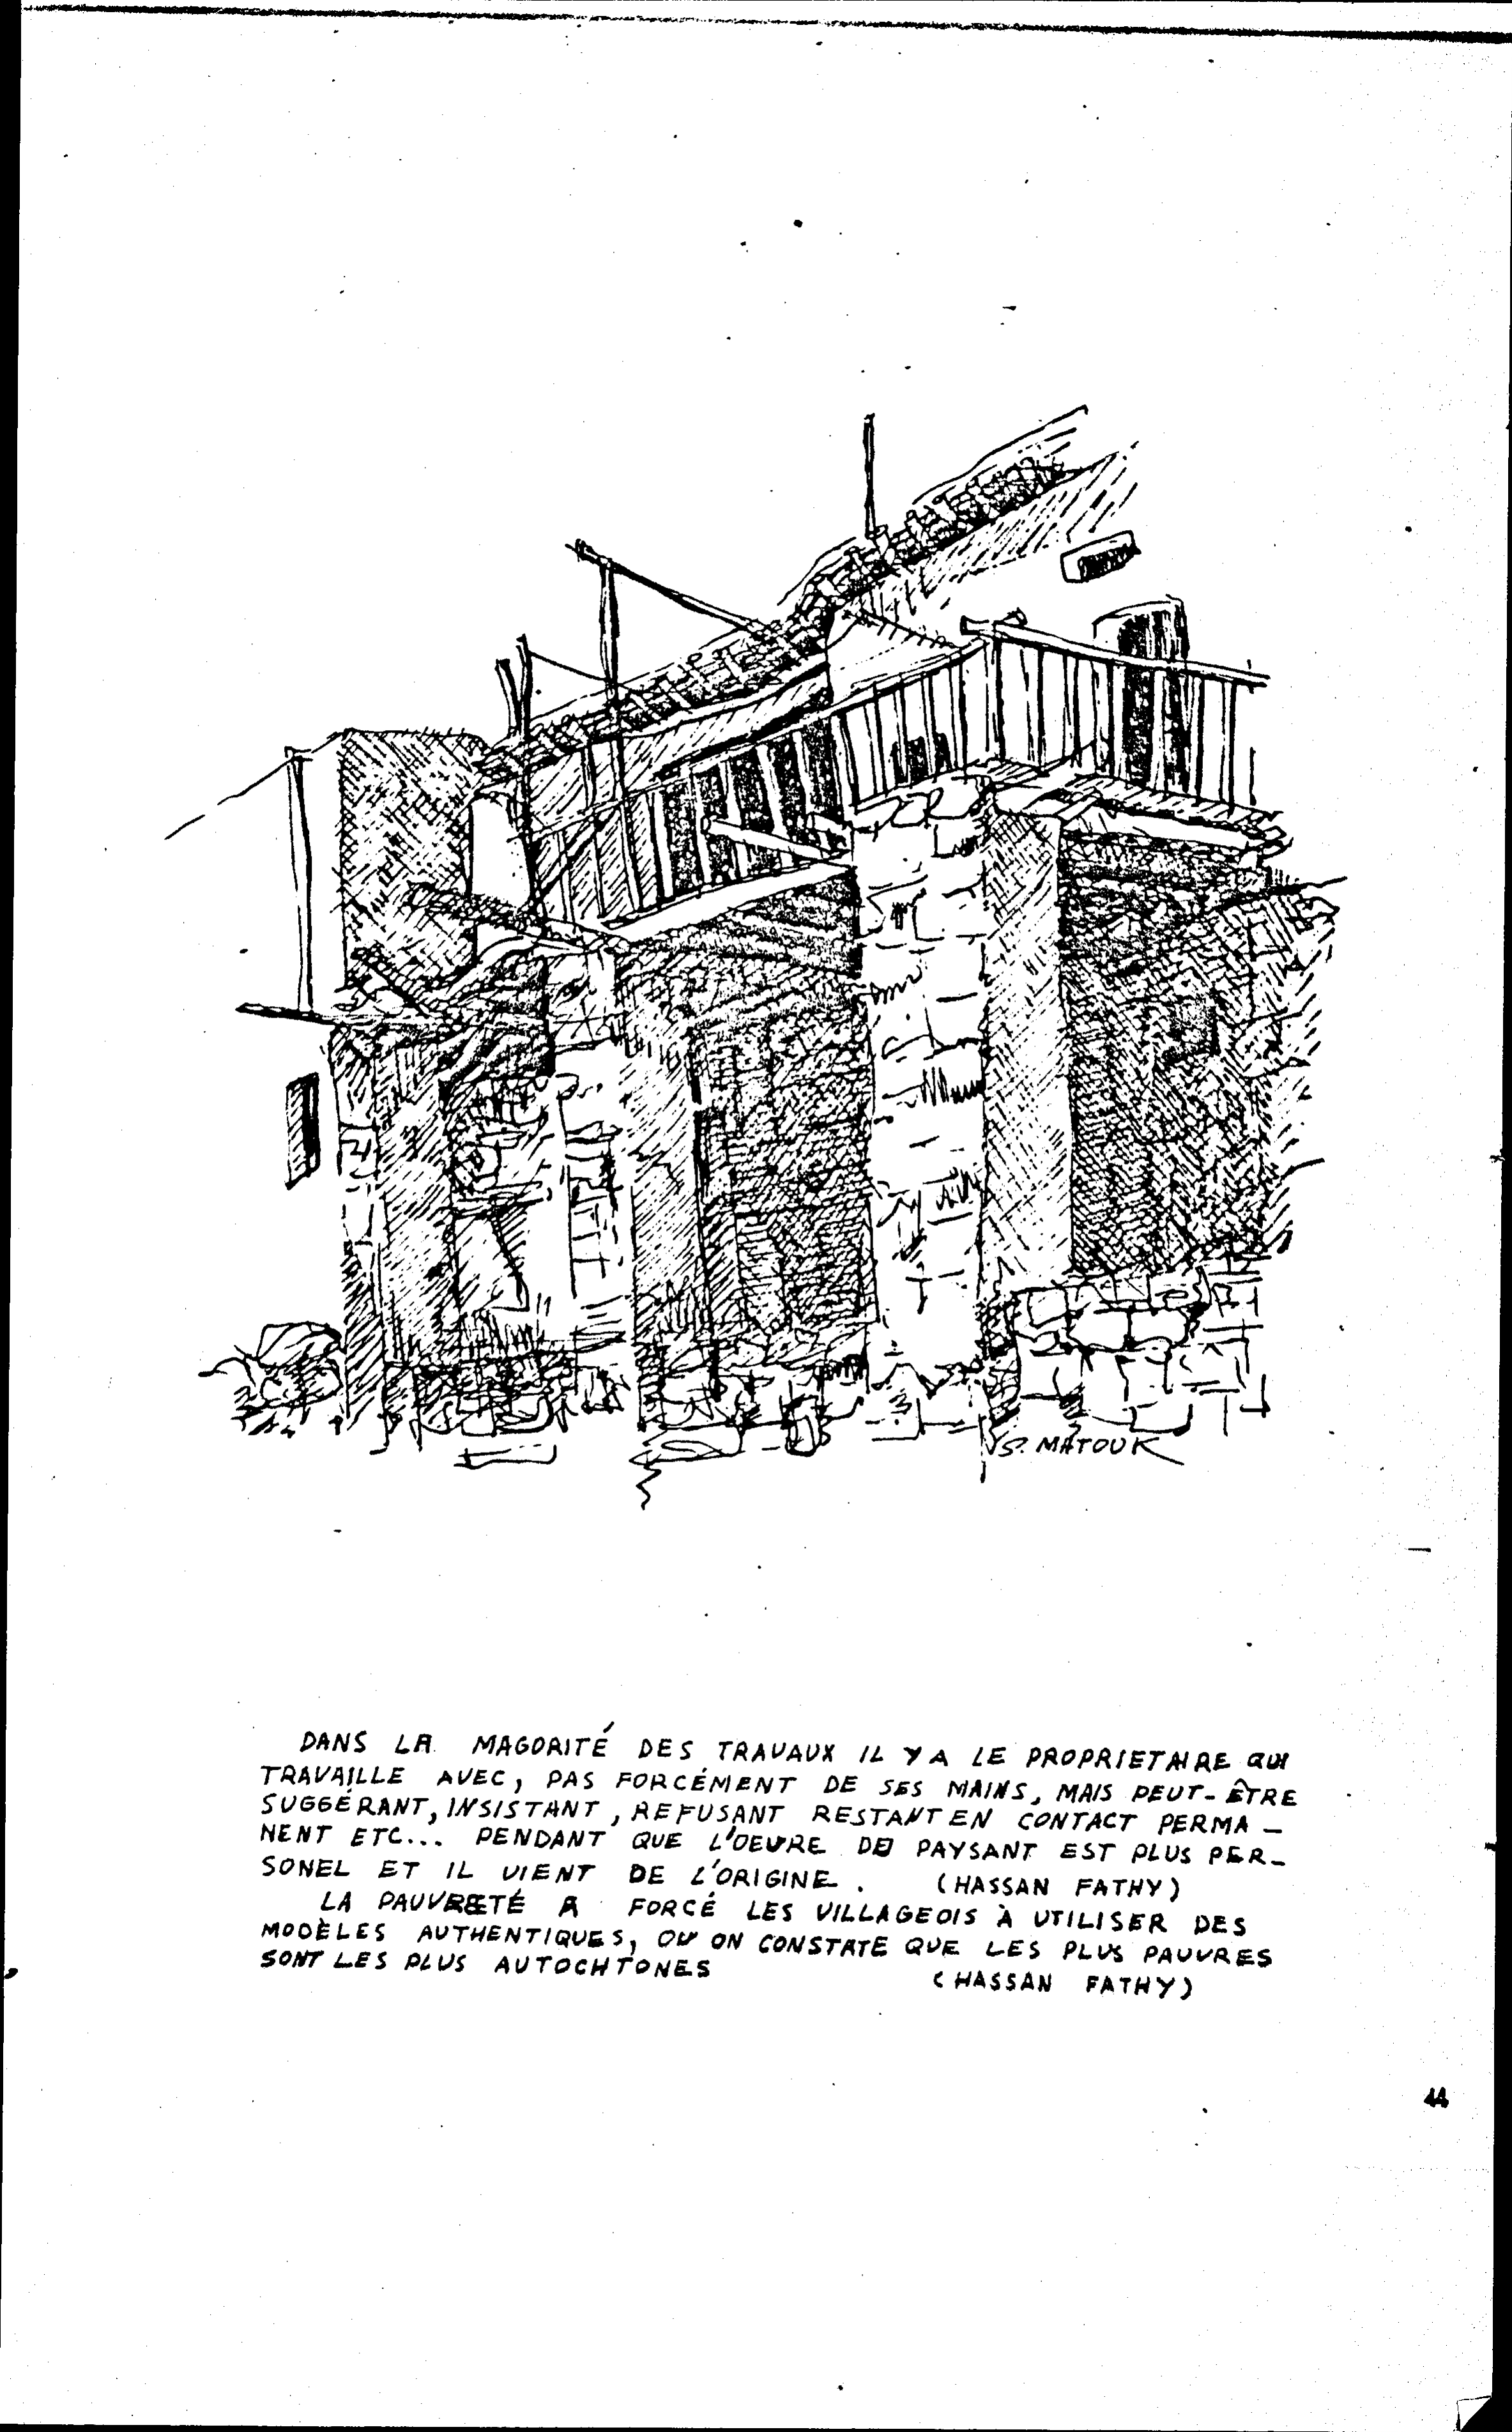 S. MATOUK
DANS LA MAGORITÉ DES TRAVAUX IL Y A LE PROPRIETAIRE QUI
TRAVAILLE AVEC, PAS FORCÉMENT DE SES MAINS, MAIS PEUT-ÊTRE
SUGGÉRANT, INSISTANT, REFUSANT RESTANT EN CONTACT PERMA-
NENT ETC... PENDANT QUE L'OEUVRE DE PAYSANT EST PLUS PER-
SONEL ET IL VIENT DE L'ORIGINE. (HASSAN FATHY)
LA PAUVRETÉ A FORCÉ LES VILLAGEOIS À UTILISER DES
MODÈLES AUTHENTIQUES, OU ON CONSTATE QUE LES PLUS PAUVRES
SONT LES PLUS AUTOCHTONES (HASSAN FATHY)
44